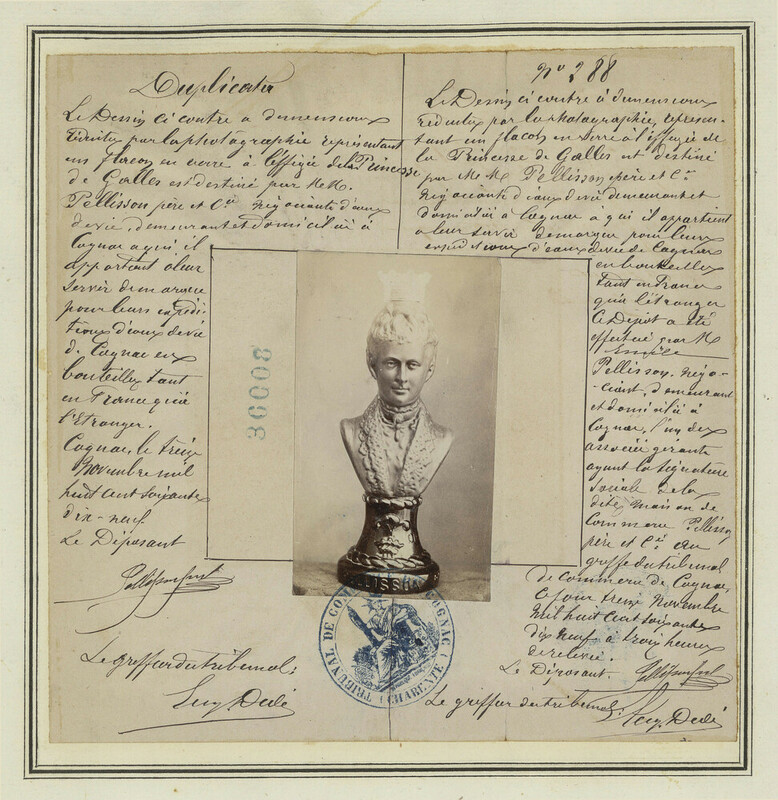 Duplicata
Le Dessin ci contre à dimensions
réduites par la photographie représentant
un flacon en verre à l'effigie de la Princesse
de Galles est destiné par M.M.
Pellisson père et Cie Négociants d'eaux
de vie, demeurant et domiciliés à
Cognac a qui il
appartient a leur
servir de marque
pour leurs expédi-
tions d'eaux de vie
de Cognac en
bouteilles tant
en France qu'à
l'Etranger.
Cognac, le treize
Novembre mil
huit cent soixante
dix-neuf
Le Déposant
Le greffier du tribunal:
No 288
Le Dessin ci contre à dimensions
réduites par la photographie, représen-
tant un flacon en verre à l'effigie de
la Princesse de Galles est destiné
par M M. Pellisson père et Cie
Négociants d'eaux de vie demeurant et
domiciliés à Cognac a qui il appartient
a leur servir de marque pour leurs
expéditions d'eaux de vie de Cognac
en bouteilles
tant en France
qu'à l'étranger
Ce Dépôt a été
effectué par M.
Emile
Pellisson, négo-
ciant, demeurant
et domicilié à
Cognac, l'un des
associés gérants
ayant la signature
sociale de la
dite maison de
Commerce Pellisson
père et Cie Au
greffe du tribunal
de commerce de Cognac,
ce jour treize Novembre
mil huit cent soixante
dix neuf à trois heures
de relevée.
Le Déposant.
Le greffier du tribunal:
36008
PELLISSON
TRIBUNAL DE COMMERCE COGNAC
(CHARENTE)